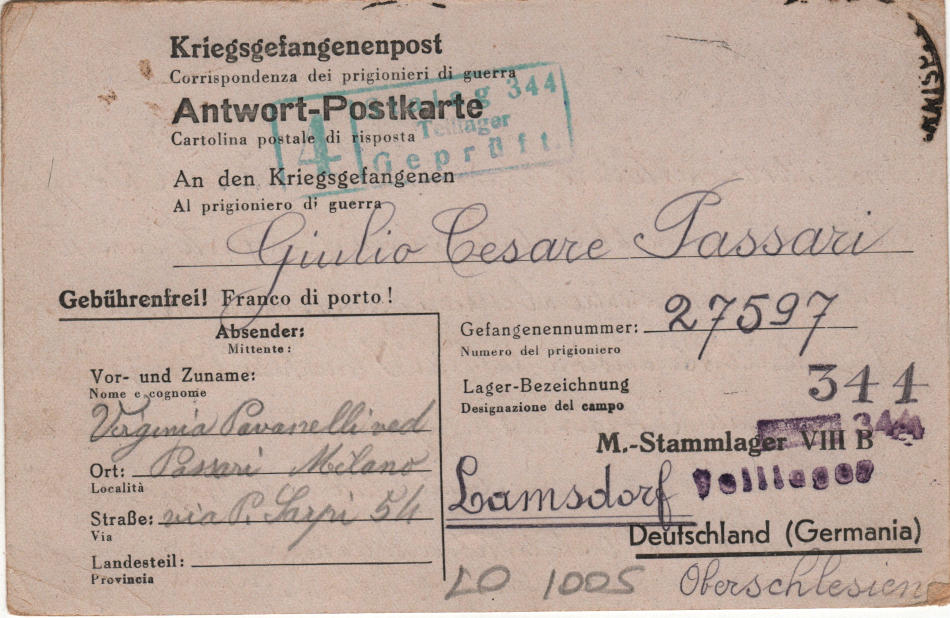 Kriegsgefangenenpost
Corrispondenza dei prigionieri di guerra
Antwort-Postkarte
Cartolina postale di risposta
4
Stalag 344
Teillager
Geprüft.
An den Kriegsgefangenen
Al prigioniero di guerra
Giulio Cesare Passari
Gebührenfrei! Franco di porto!
Absender:
Mittente:
Vor- und Zuname:
Nome e cognome
Virginia Pavanelli ved
Passari Milano
Ort:
Località
Straße: via P. Sarpi 54
Via
Landesteil:
Provincia
Gefangenennummer: 27597
Numero del prigioniero
Lager-Bezeichnung 344
Designazione del campo
344
M.-Stammlager VIII B
Lamsdorf Teillager
Deutschland (Germania)
Oberschlesien
LO 1005